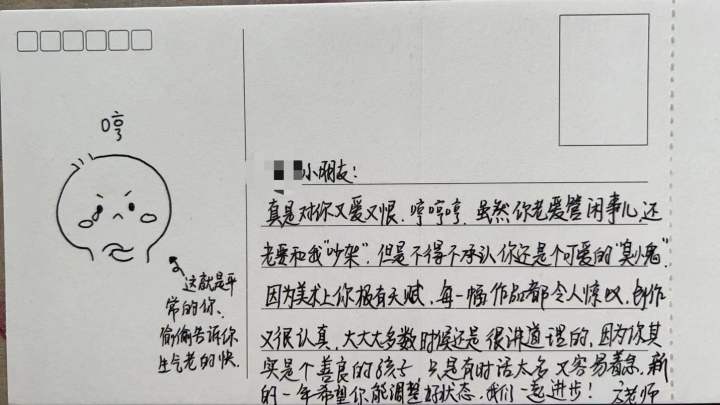 哼
这就是平
常的你、
偷偷告诉你
生气老的快.
小朋友：
真是对你又爱又恨.哼哼哼.虽然你老爱管闲事儿,还
老要和我“吵架”.但是不得不承认你还是个可爱的“臭小鬼”.
因为美术上你极有天赋,每一幅作品都令人惊叹,创作
又很认真.大大大多数时候还是很讲道理的,因为你其
实是个善良的孩子.只是有时话太多又容易着急.新
的一年希望你能调整好状态.我们一起进步！老师